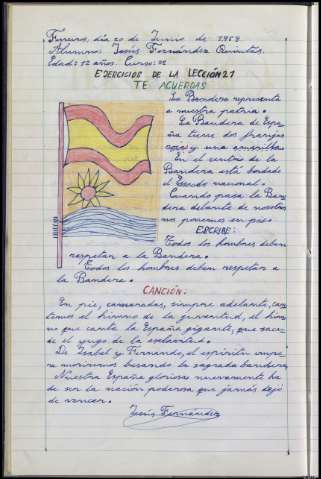 día 20 de Junio de 1969
Alumno: Jesús Fernández Quintás.
Edad: 12 años. Curso:
EJERCICIOS DE LA LECCIÓN 21
TE ACUERDAS
La Bandera representa
a nuestra patria.
La Bandera de Espa-
ña tiene dos franjas
rojas y una amarilla.
En el centro de la
Bandera está bordado
el Escudo nacional.
Cuando pasa la Ban-
dera delante de nosotros
nos ponemos en pie.
ESCRIBE:
Todos los hombres deben
respetar a la Bandera.
Todos los hombres deben respetar a
la Bandera.
CANCIÓN:
En pie, camaradas, siempre adelante, can-
temos el himno de la juventud, el him-
no que canta la España gigante, que sacu-
de el yugo de la esclavitud.
De Isabel y Fernando, el espíritu impe-
ra moriremos besando la sagrada bandera.
Nuestra España gloriosa nuevamente ha
de ser la nación poderosa que jamás dejó
de vencer.
Jesús Fernández